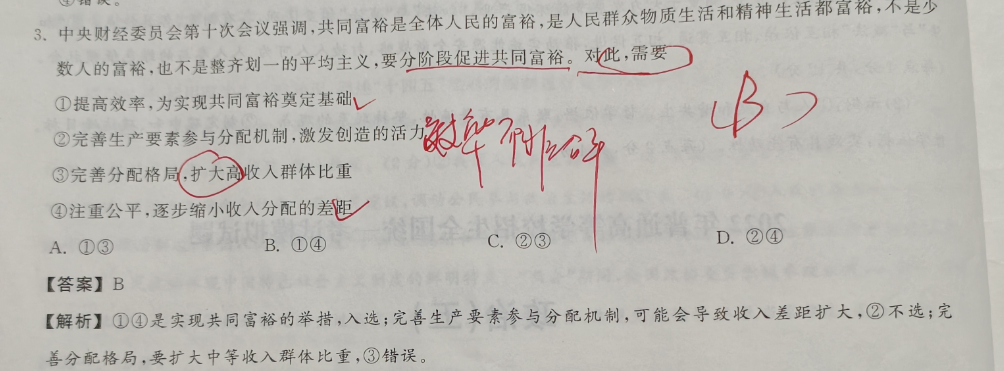 3. 中央财经委员会第十次会议强调,共同富裕是全体人民的富裕,是人民群众物质生活和精神生活都富裕,不是少
数人的富裕,也不是整齐划一的平均主义,要分阶段促进共同富裕。对此,需要
①提高效率,为实现共同富裕奠定基础
②完善生产要素参与分配机制,激发创造的活力
效率 公平
B
③完善分配格局,扩大高收入群体比重
④注重公平,逐步缩小收入分配的差距
A. ①③ B. ①④ C. ②③ D. ②④
【答案】B
【解析】①④是实现共同富裕的举措,入选;完善生产要素参与分配机制,可能会导致收入差距扩大,②不选;完
善分配格局,要扩大中等收入群体比重,③错误。